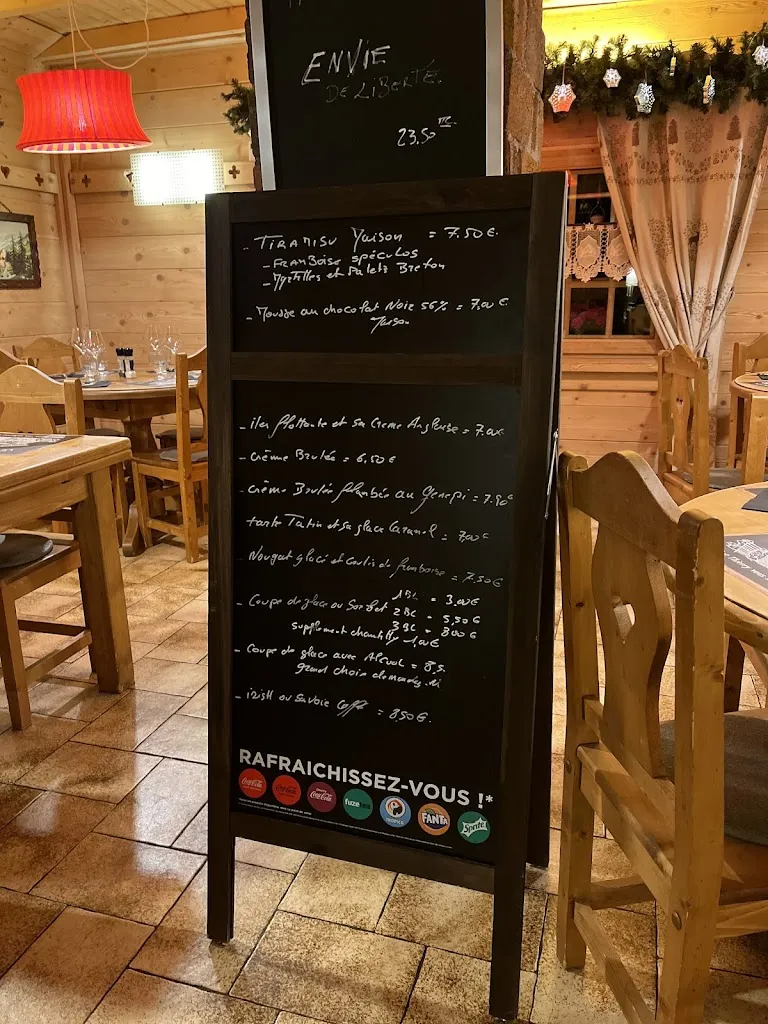 ENVIE
DE LIBERTÉ.
23.50
- TIRAMISU Maison = 7.50€.
- FRAMBOISE SPÉCULOS
- Myrtilles et Palets Breton
- Mousse au chocolat Noir 56% = 7,00€.
Maison
- iles flottante et sa Creme Anglaise = 7.00€
- Crème Brulée = 6,50€
- crème Brulée flambée au Genepi = 7.90€
tarte Tatin et sa glace Caramel = 7.00€
- Nougat glacé et coulis de framboise = 7.50€
- Coupe de glace ou Sorbet 1BL = 3,00€
2BL = 5,50€
3BL = 8,00€
supplement chantilly 1,00€
- Coupe de glace avec Alcool = 8.5.
grand choix demandez.
- irish ou Savoie Coffe = 8,50€.
RAFRAICHISSEZ-VOUS !*
Coca-Cola Coca-Cola Coca-Cola fuzetea TROPICO FANTA Sprite